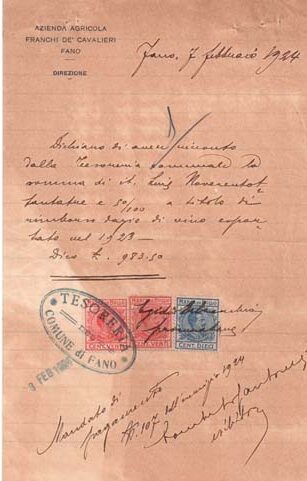 AZIENDA AGRICOLA
FRANCHI DE' CAVALIERI
FANO
DIREZIONE
Fano, 7 febbraio 1924
Dichiaro di aver riscosso
dalla Tesoreria comunale la
somma di it. Lire Novecentot
tantatre e 50/100 a titolo di
rimborso dazio di vino espor
tato nel 1923 —
Dico £. 983.50
TESORERIA
COMUNE di FANO
8 FEB 1924
CENT. VENTI
CENT. DIECI
Mandato di
pagamento
N. 107 1924